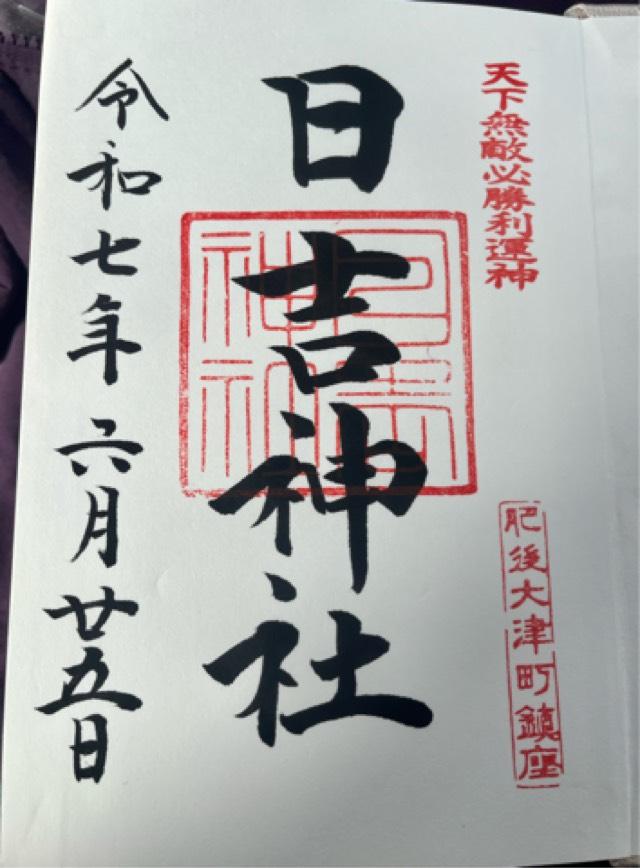 天下無敵必勝利運神
肥後大津町鎮座
日吉神社
日吉
神社
令和七年六月廿五日